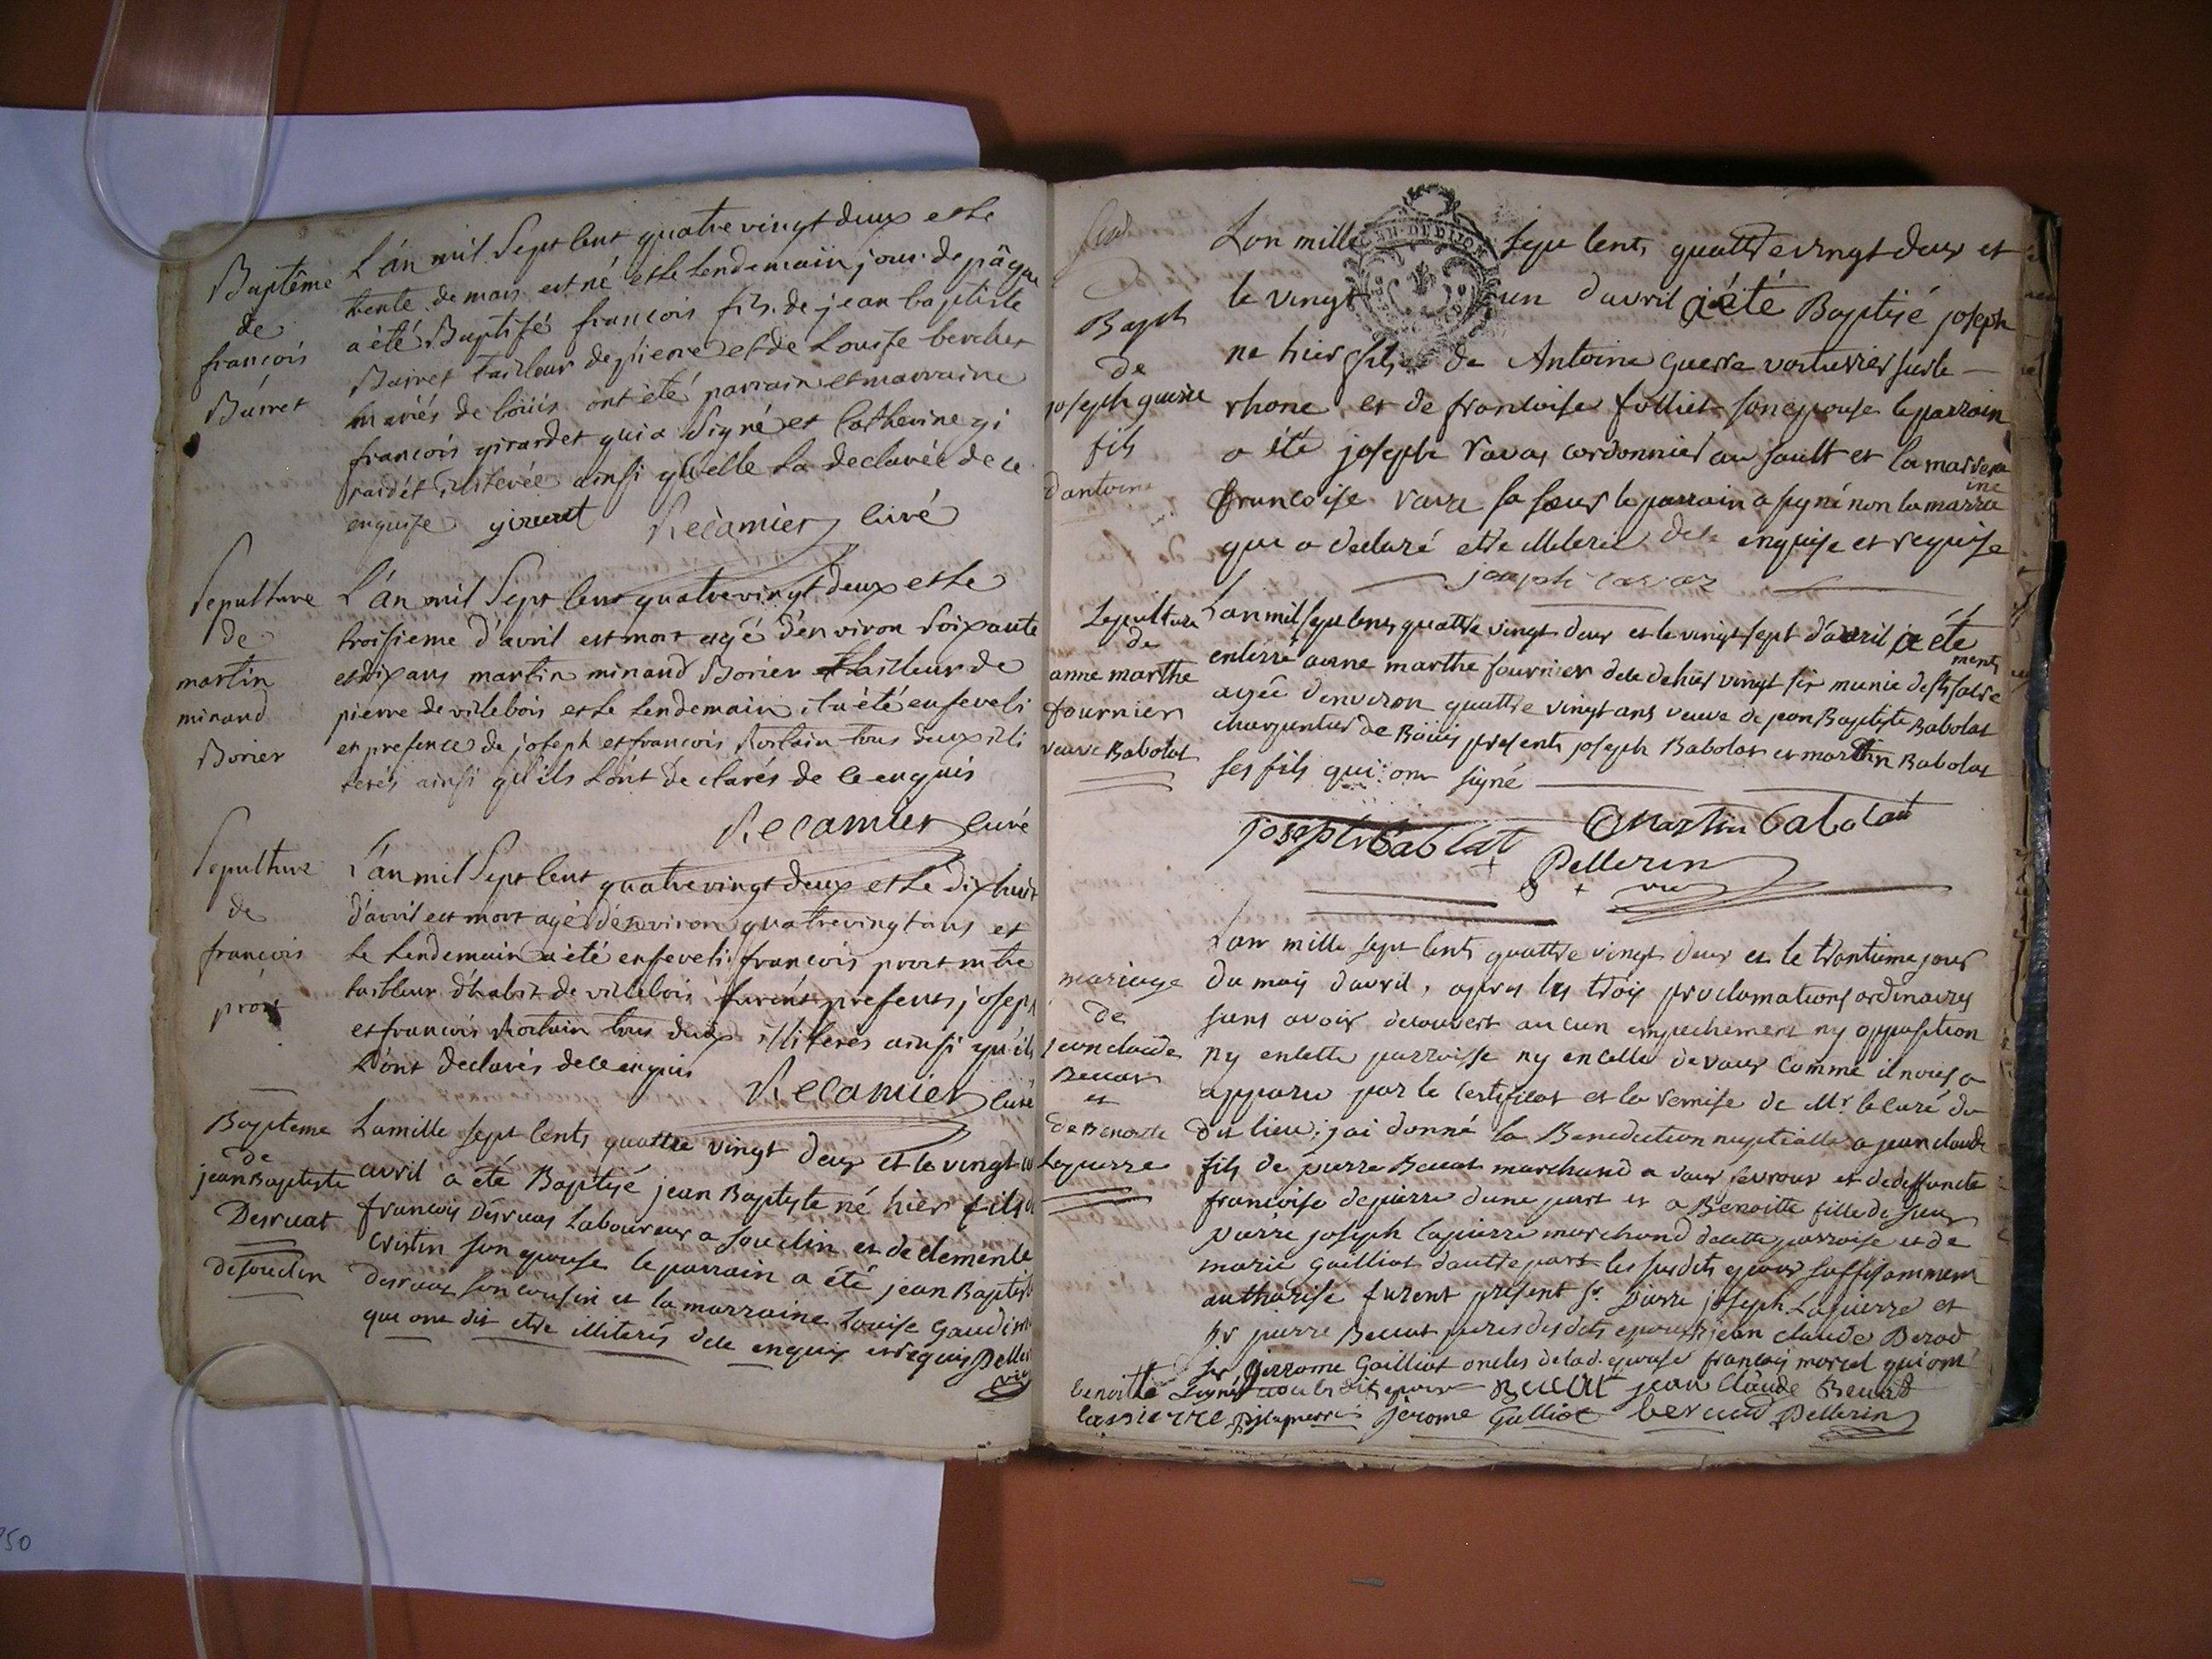 Baptême
de
françois
Bairret
L'án mil Sept Cent quatre vingt deux et Le
trente de mars est né et Le Lendemain jour de pâque
a été Baptisé françois fils de jean baptiste
Bairret tailleur de pierre et de Louise
mariés de boüis ont été parrain et marraine
françois girardet qui a Signé et Catherine gi
rardet illiterée ainsi qu'elle La declarée de ce
enquise Recamier Curé
Sepulture
de
martin
minand
Borier
L'án mil Sept Cent quatre vingt deux et Le
troisieme d'avril est mort agé d'environ Soixante
et dix ans martin minand Borier tailleur de
pierre de villebois et Le Lendemain il a été enseveli
en presence de joseph et françois Rostain tous deux illi
terés ainsi qu'ils L'ont declarés de ce enquis
Recamier Curé
Sepulture
de
françois
prost
L'án mil Sept Cent quatre vingt deux et Le Dix huit
d'avril est mort agé d'environ quatre vingt ans et
Le Lendemain a été enseveli françois prost mtre
tailleur d'habit de villebois furent presents joseph
et françois Rostain tous deux illiterés ainsi qu'ils
L'ont declarés de ce enquis Recamier Curé
Bapteme
de
jean Baptiste
Desruat
de souclin
Lamille sept Cents quattre vingt deux et le vingt
avril a été Baptisé jean Baptyste né hier fils
françois Desruas Laboureur a souclin et de clemence
cristin son epouse le parrain a été jean Baptist
desruas son cousin et la marraine Louise Gaudin
que ont dit etre illiterés de ce enquis et requis Peller
vic
Bapt
de
joseph guerre
fils
d'antoine
Lan mille sept Cents quattre vingt deux et
le vingt un d'avril a été Baptisé joseph
ne hier fils de Antoine Guerre voiturier sur le
rhone et de francoise folliet son epouse le parrain
a été joseph ravas cordonnier au sault et la marrene
francoise ravas sa soeur le parrain a signé non la marra
ine
que a declaré etre illeteré de ce enquise et requise
joseph ravaz
Sepulture
de
anne marthe
fournier
veuve Babolat
Lan mil sept Cents quattre vingt deux et le vingt sept d'avril a été
enterré anne marthe fournier de de dehier vingt six munie de sts sacre
ments
agée d'environ quattre vingt ans veuve de jean Baptiste Babolat
charpentier de Boüis presents joseph Babolat et martin Babolat
ses fils qui ont signé
joseph bablat Martin babolat
Pellerin
vic
mariage
de
jean claude
Beccat
et
de Benoitte
Lapierre
Lan mille sept Cents quattre vingt deux et le trantieme jour
du mois d'avril, apres les trois proclamations ordinaires
sans avoir decouvert aucun empechement ny opposition
ny en cette parroisse ny en celle de vaux comme il nous a
apparu par le certificat et la remise de Mr. le curé du
dit lieu; j'ai donné la Benediction nuptialle a jean claude
fils de pierre Beccat marchand a vaux fevroux et de deffuncte
francoise depierre d'une part et a Benoitte fille de sieur
pierre joseph lapierre marchand de cette parroise et de
marie Gailliot d'autre part les susdits epoux suffisamment
authorise furent present Sr. pierre joseph Lapierre et
Sr pierre Beccat peres des dits epoux jean claude Berod
Sr jerrome Gailliot oncles de lad. epouse francois morel qui ont
signé avec les dits epoux Beccat jean Claude Beccat
benoitte
lapierre jerome Galliot berod Pellerin